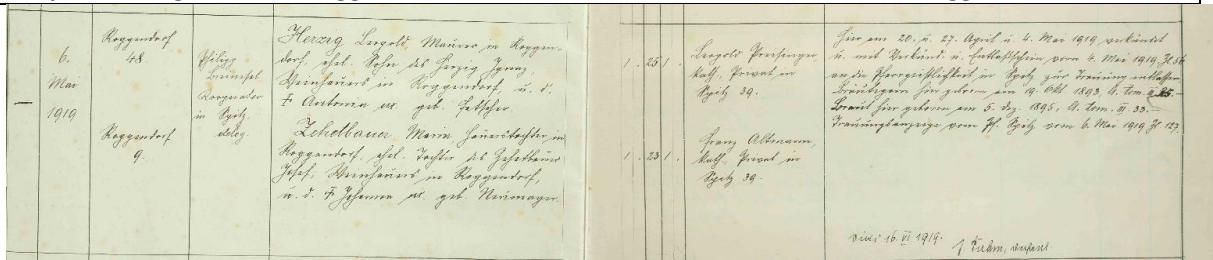 6.
Mai
1919
Roggendorf
48.
Roggendorf
9.
Philipp
in Spitz,
deleg.
Herzig Leopold, Maurer in Roggen-
dorf, ehel. Sohn des Herzig Ignaz,
Weinhauers in Roggendorf, u. d.
Antonia geb.
Zehetbauer Maria Hauerstochter in
Roggendorf, ehel. Tochter des Zehetbauer
Josef, Weinhauers in Roggendorf,
u. d. Johanna geb. Neumayer.
1 . 25 1 .
Leopold
kath., Privat in
Spitz 39.
1 . 23 1 .
Franz Altmann,
kath., Privat in
Spitz 39.
Hier am 20. u. 27. April u. 4. Mai 1919 verkündet
u. mit Verkünd- u. Entlaßschein vom 4. Mai 1919, Zl.
an die Pfarrgeistlichkeit in Spitz zur Trauung entlassen.
Bräutigam hier geboren am 19. Okt. 1893, tom.
Braut hier geboren am 5. Dez. 1895, tom. 33.
Trauungsanzeige vom Pf. Spitz vom 6. Mai 1919 Zl 127.
Vidi 16. VI 1919.